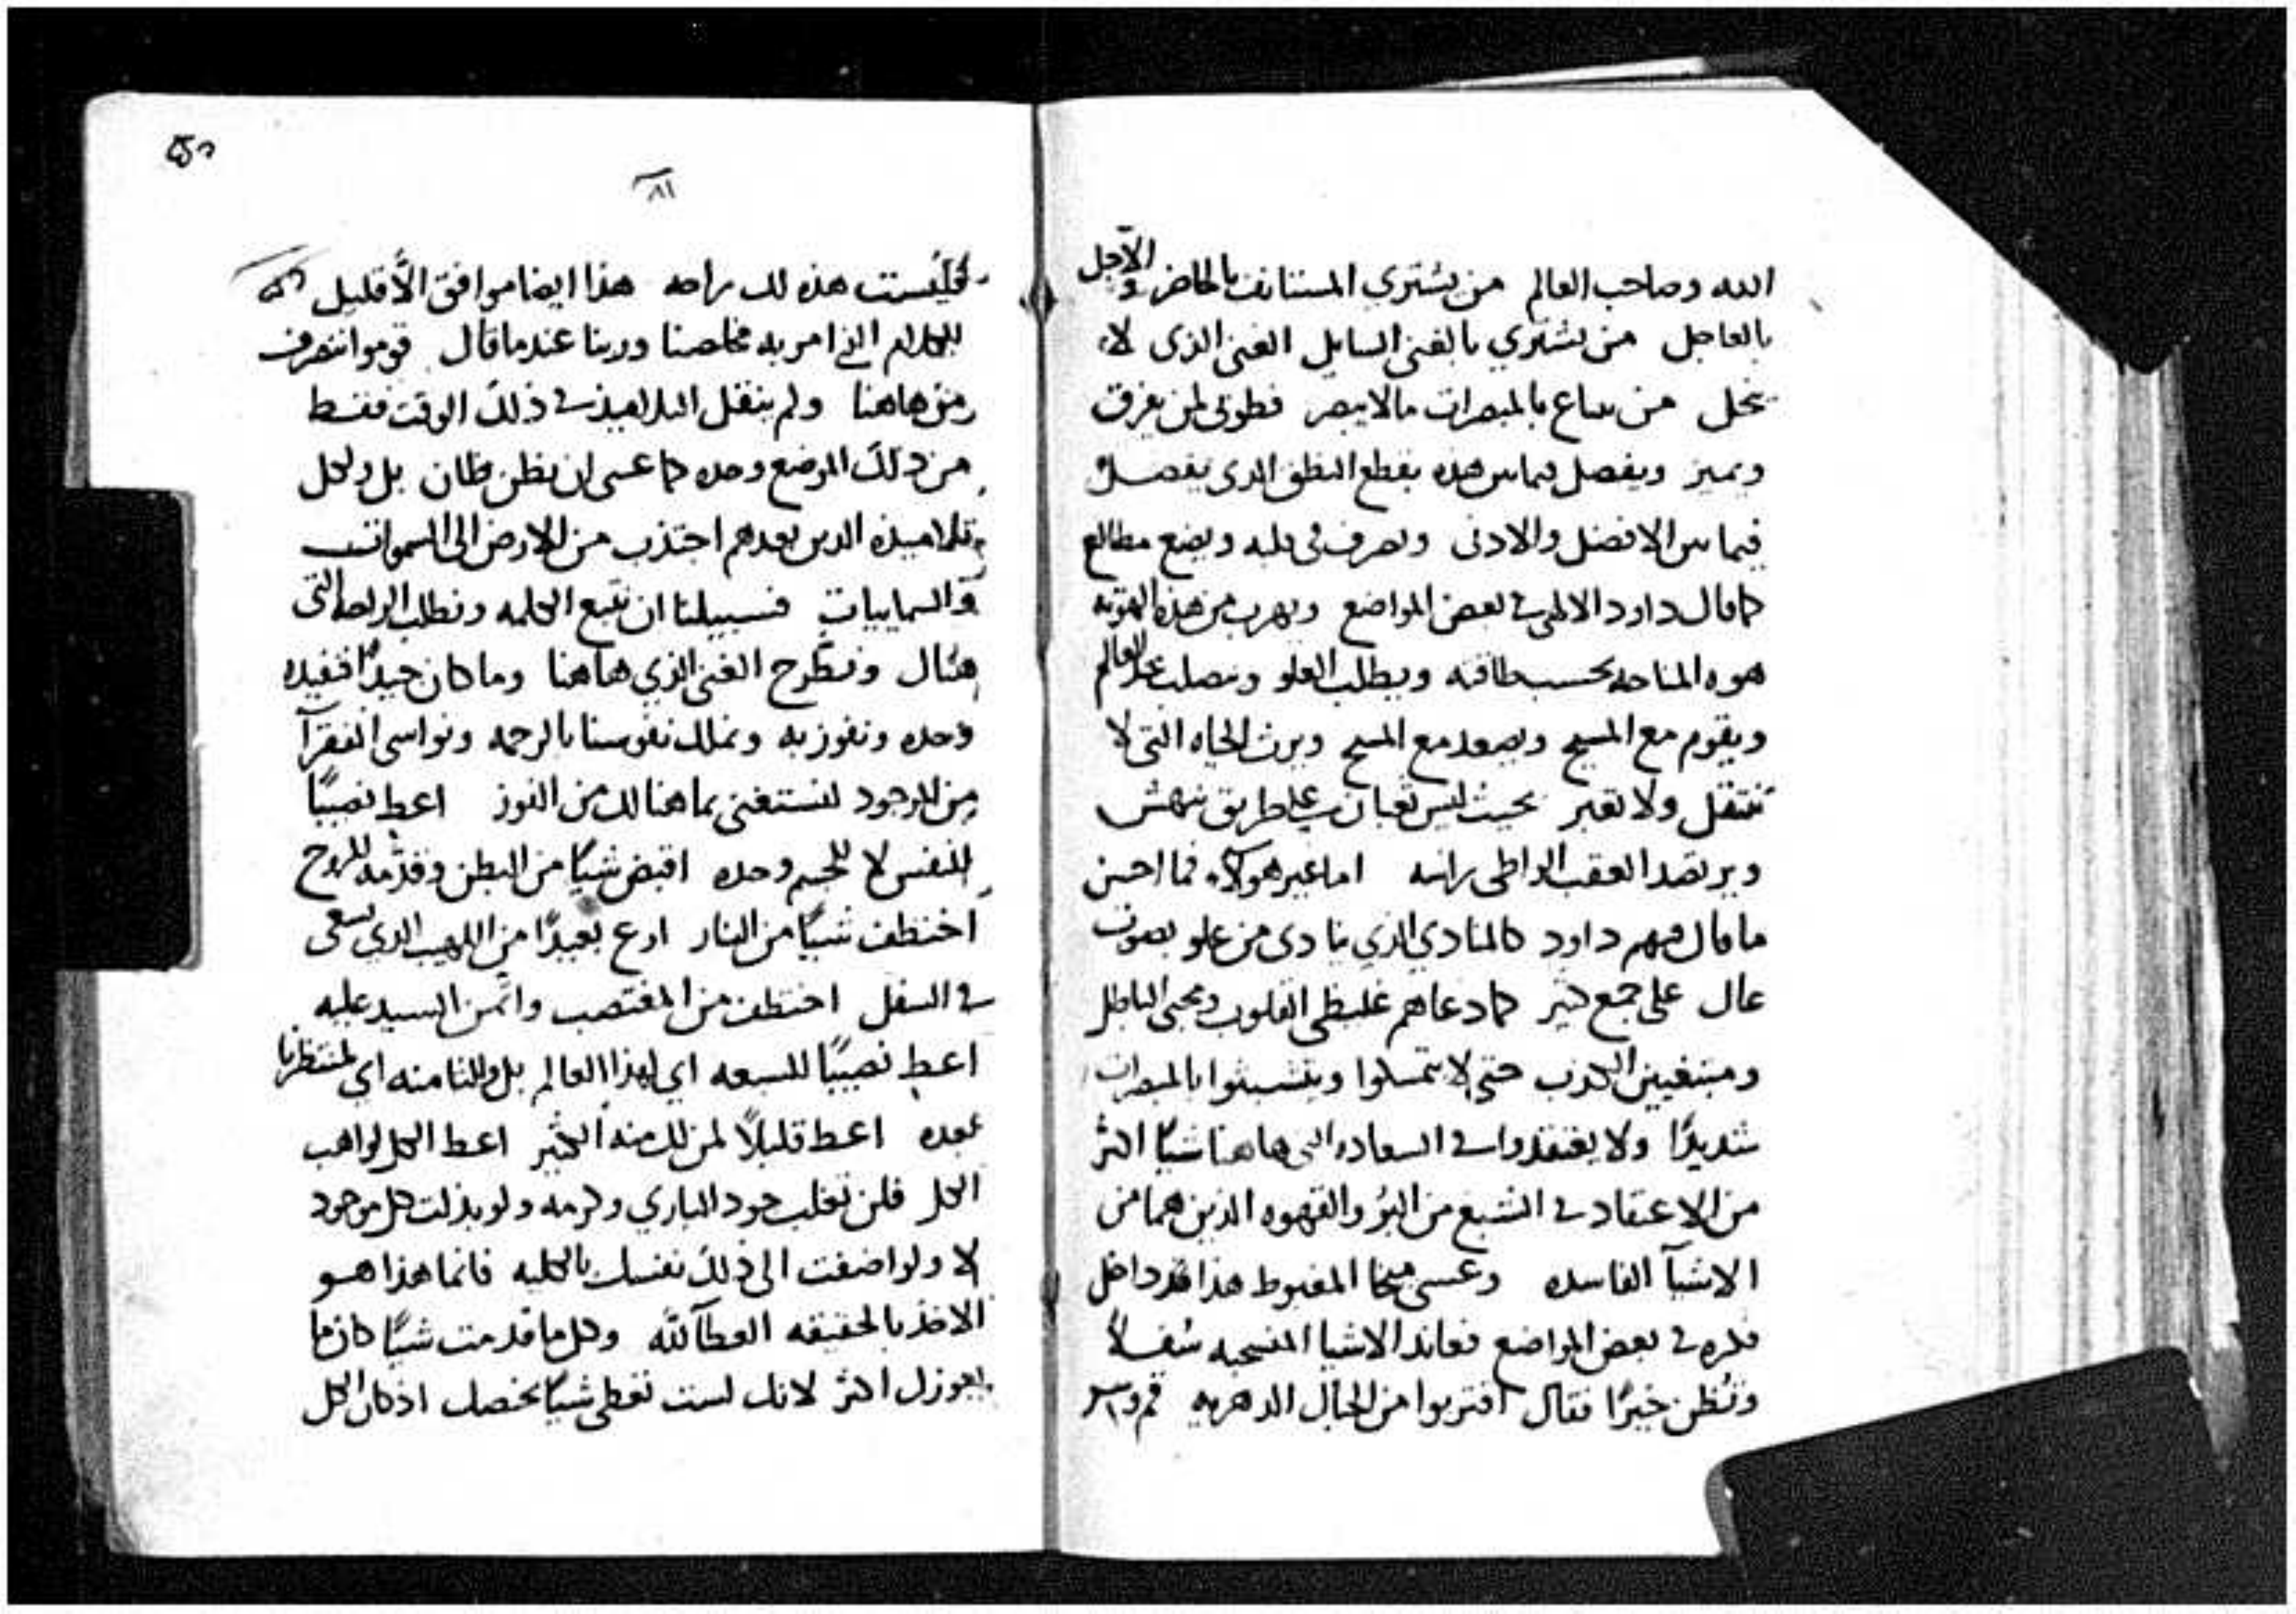 الله وصاحب العالم من يشتري المستانف بالحاضر والآجل
بالعاجل من يشتري بالغنى السايل الغنى الذى لا
يحل من يبتاع بالمبصرات مالايبصر فطوبى لمن يفرق
ويميز ويفصل فيمابين هذه بقطع النطق الدى يفصل
فيما بين الافضل والادنى ويعرف فى قلبه ويضع مطالع
كماقال داود الالهى في بعض المواضع ويهرب من هذه
هوه المناحه بحسب طاقته ويطلب العلو ويصلب مع العالم
ويقوم مع المسيح ويصعد مع المسيح ويرث الحياه التى لا
تنتقل ولا تعبر بحيث ليس ثعبان على طريق ينهش
ويرتصد العقب الواطى راسه اماغير هولاء فما احسن
ماقال فيهم داود كالمنادي الذي ينادى من علو بصوت
عال على جمع كثير كما دعاهم غليظى القلوب ومحبى الباطل
ومبتغيين الكذب حتى لا يتمسكوا ويتشبثوا بالمبصرات
شديدًا ولا يعتقدوا في السعاده التى هاهنا شيًا اكثر
من الاعتقاد في الشبع من البُر والقهوه الذين هما من
الاشيآ الفاسده وعسى ميخا المغبوط هذا قد داخل
فكره في بعض المواضع فعاند الاشيا المنسحبه سُفلاً
وتُظن خيرًا فقال اقتربوا من الجبال الدهريه قم وسر
٨١
فليست هذه لك براحه هذا ايضا موافق الّا قليل
للكلام الذي امر به مخلصنا وربنا عندماقال قوموا ننصرف
من هاهنا ولم ينقل التلاميذ في ذلك الوقت فقط
من ذلك الموضع وحده كما عسى ان يظن ظان بل ولكل
تلاميذه الدين بعدهم اجتذب من الارض الى السموات
والسماييات فسبيلنا ان نتبع الكلمه ونطلب الراحه التى
هناك ونطرح الغنى الذي هاهنا وماكان جيدًا فنفيده
وحده ونفوز به ونملك نفوسنا بالرحمه ونواسى الفقرآ
من الموجود لنستغنى بما هنالك من الفوز اعط نصيبًا
للنفس لا للجسم وحده اقبض شيًا من البطن وقدّمه للروح
اختطف شيًا من النار ادع بعيدًا من اللهيب الذي يسعى
في السفل اختطف من المغتصب وائمن السيد عليه
اعط نصيبًا للسبعه اي لهذا العالم بل وللثامنه اي لمنتظرنا
بعده اعط قليلًا لمن لك منه الكثير اعط الكل لواهب
الكل فلن تغلب جود الباري وكرمه ولو بذلت كل موجود
لا ولو اضفت الى ذلك نفسك بالكليه فانما هذا هو
الاخذ بالحقيقه العطآ لله وكل ما قدمت شيًا كان ما
يعوزك اكثر لانك لست تعطى شيًا يخصك اذ كان الكل